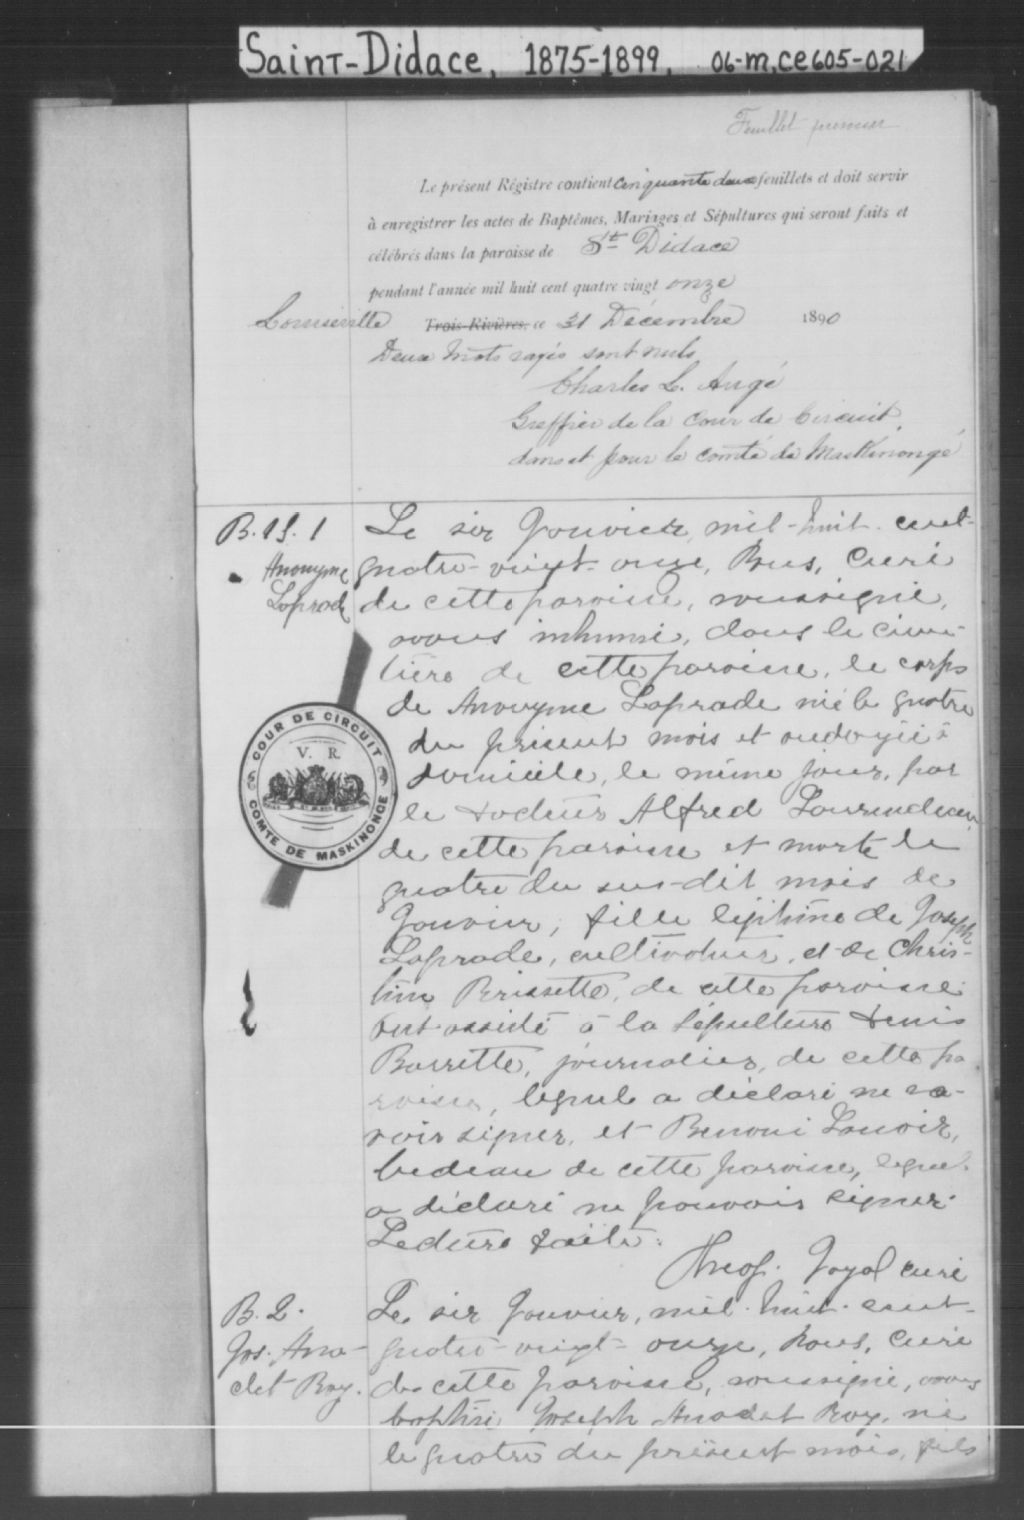 Saint-Didace, 1875-1899, 06-M,CE605-021
Feuillet premier
Le présent Régistre contient cinquante deux feuillets et doit servir
à enregistrer les actes de Baptêmes, Mariages et Sépultures qui seront faits et
célébrés dans la paroisse de St Didace
pendant l'année mil huit cent quatre vingt onze
Louiseville Trois-Rivières, ce 31 Décembre 1890
Deux mots rayés sont nuls
Charles L. Augé
Greffier de la Cour de Circuit,
dans et pour le comté de Maskinongé
B. 1 S. 1
Anonyme
Laprade
Le six Janvier, mil-huit-cent-
quatre-vingt-onze, Nous, Curé
de cette paroisse, soussigné,
avons inhumé, dans le cime-
tière de cette paroisse, le corps
de Anonyme Laprade née le quatre
du présent mois et ondoyée à
domicile, le même jour, par
le docteur Alfred
de cette paroisse et morte le
quatre du sus-dit mois de
Janvier, fille légitime de Joseph
Laprade, cultivateur, et de Chris-
tine Brissette, de cette paroisse.
Ont assisté à la sépulture Denis
Barrette, journalier, de cette pa
roisse, lequel a déclaré ne sa-
voir signer, et Benoni Lanoix,
bedeau de cette paroisse, lequel
a déclaré ne pouvoir signer.
Lecture faite.
Joyal curé
COUR DE CIRCUIT
V. R.
COMTE DE MASKINONGE
B. 2.
Jos. Ana-
clet Roy.
Le six Janvier, mil-huit-cent-
quatre-vingt-onze, Nous, Curé
de cette paroisse, soussigné, avons
baptisé Joseph Anaclet Roy, né
le quatre du présent mois, fils